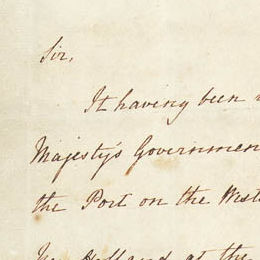 Sir,
It having been
Majesty's Governmen
the Port on the West
Holland at the